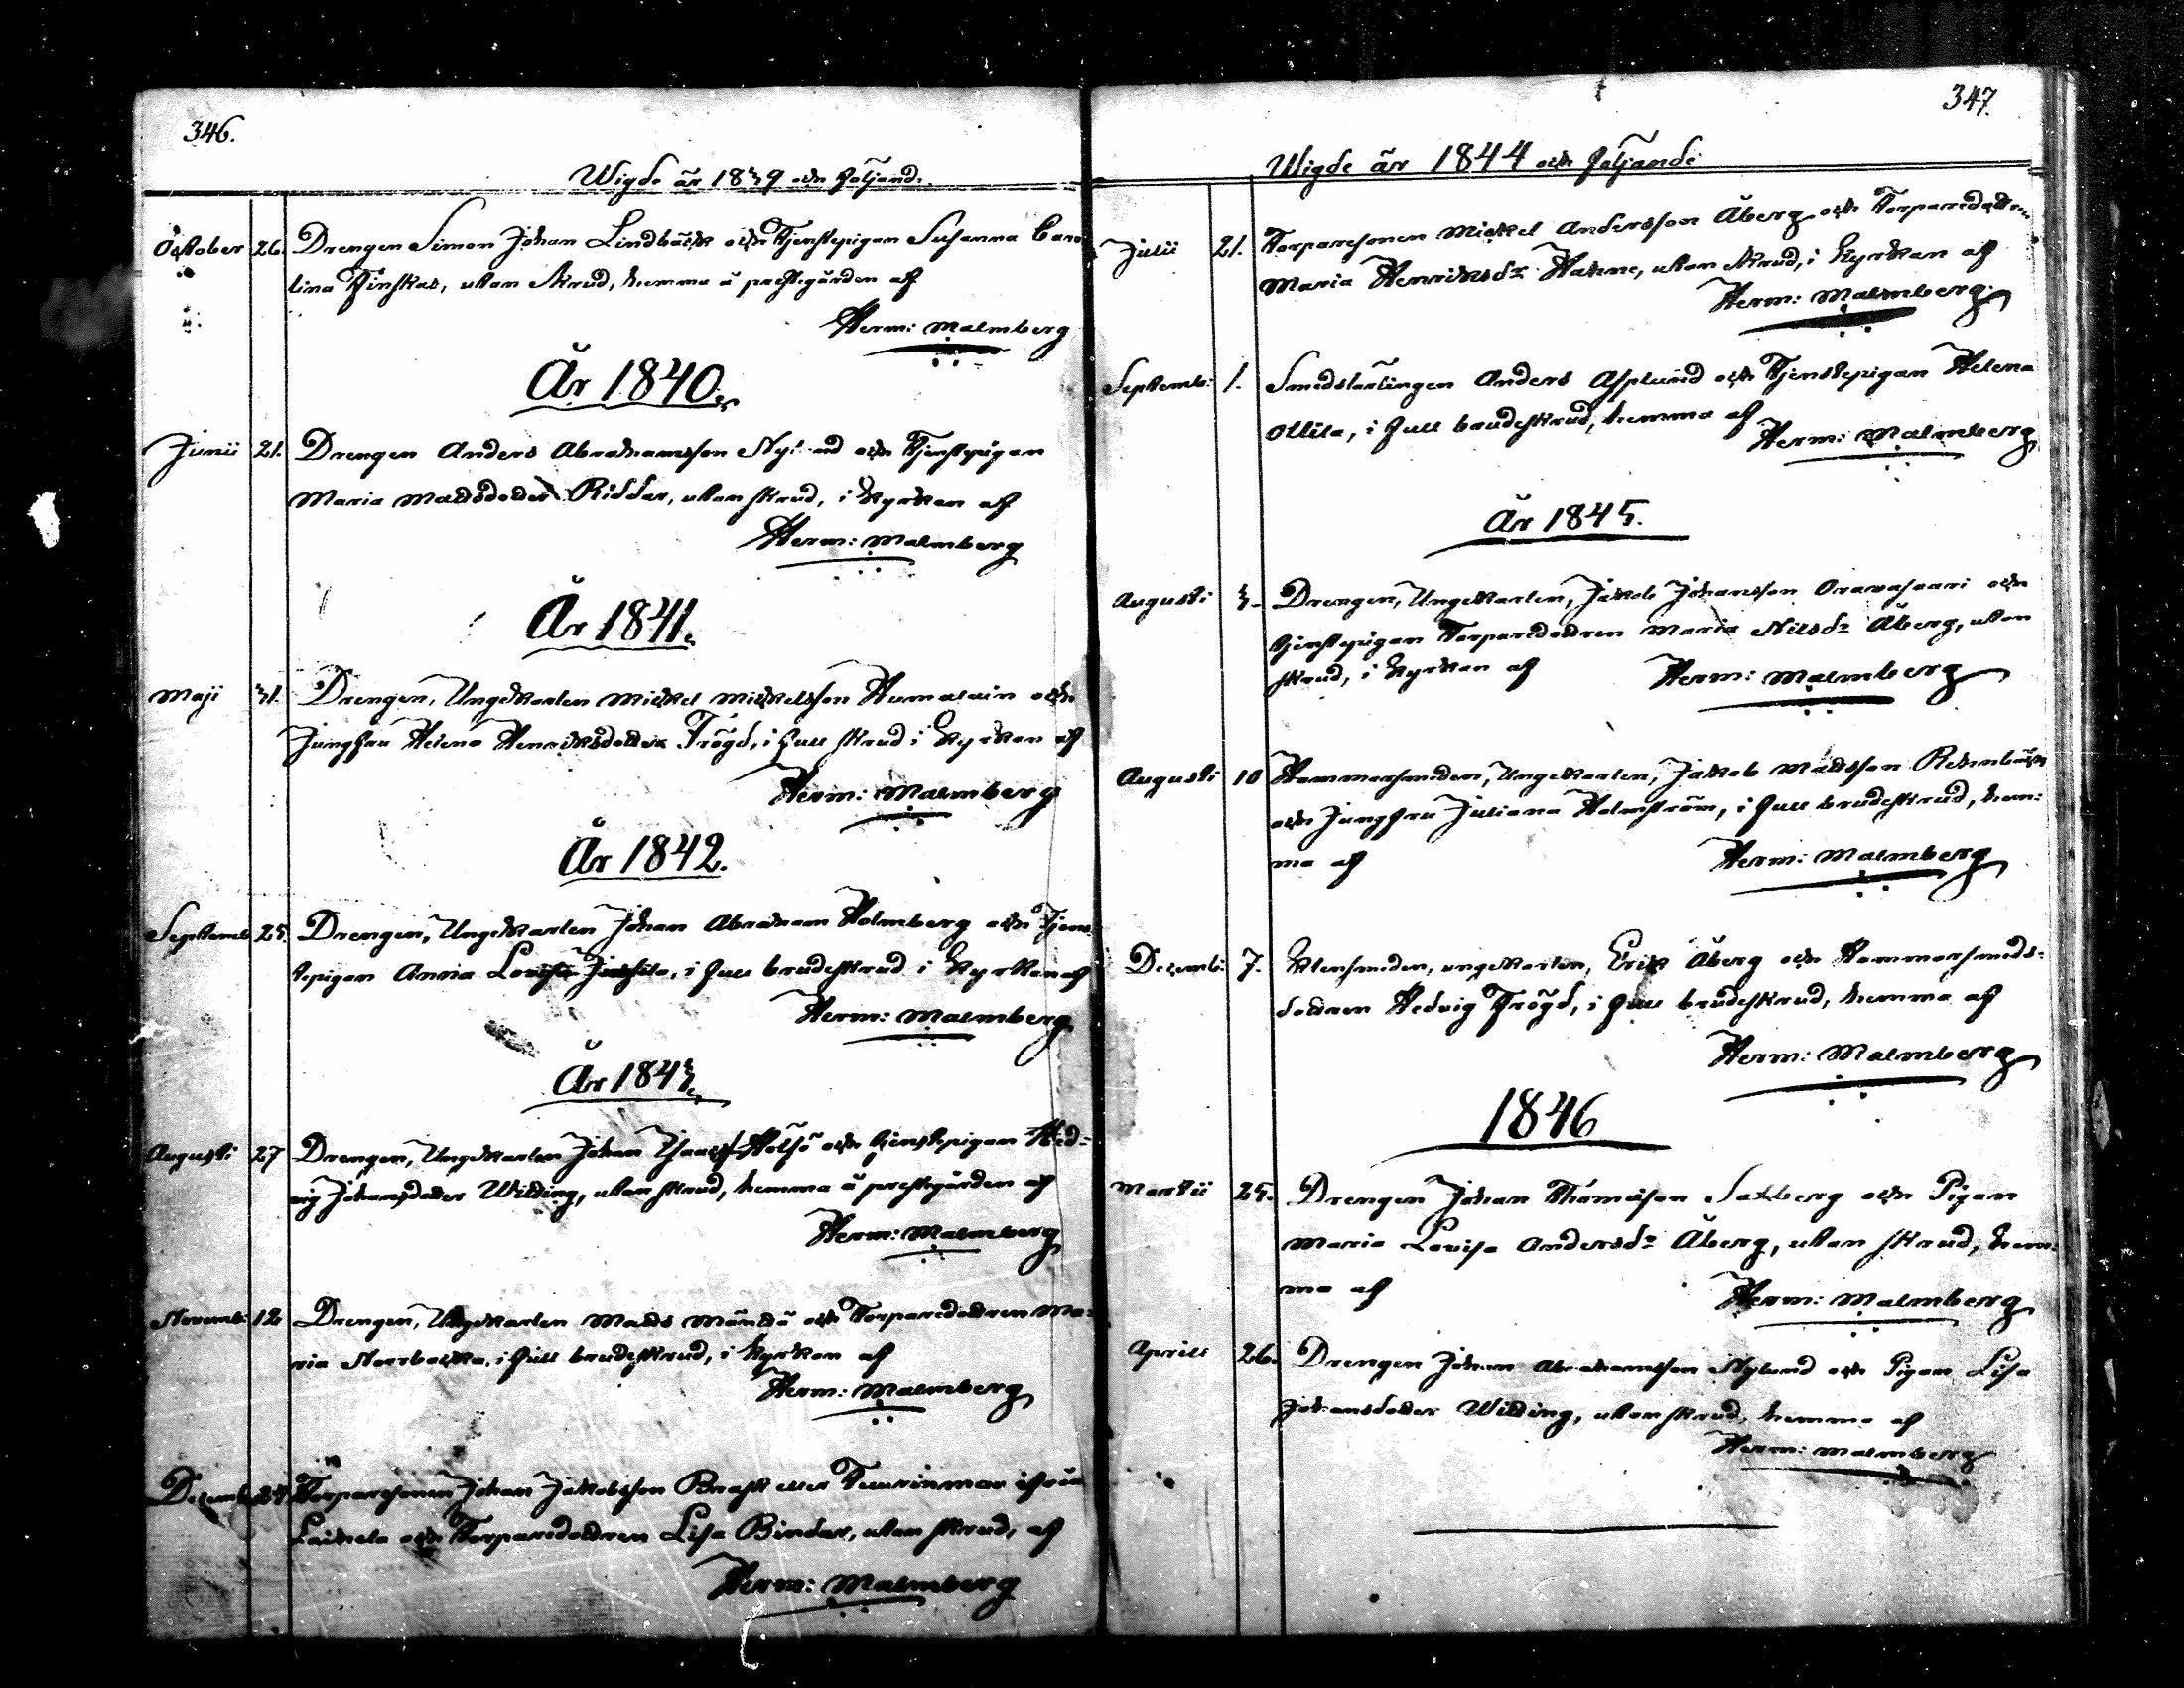 346.
Wigde år 1839 och följand.
October 26. Drengen Simon Johan Lindbäck och Tjenstepigan Susanna Caro
lina Finskas, utan skrud, hemma å prestegården af
Herm: Malmberg
År 1840.
Junii 21. Drengen Anders Abrahamsson Nylund och Tjenstepigan
Maria Mattsdotter Riddar, utan skrud, i Kyrkan af
Herm: Malmberg
År 1841.
Maji 31. Drengen, Ungkarlen Mickel Mickelsson Humalain och
Jungfru Helena Henriksdotter Frögd, i full skrud i Kyrkan af
Herm: Malmberg
År 1842.
Septemb 25. Drengen, Ungkarlen Johan Abraham Holmberg och Tjens
tepigan Anna Lovisa, i full brudeskrud i Kyrkan af
Herm: Malmberg
År 1843.
Augusti 27 Drengen, Ungkarlen Johan Isaacss Hölsö och tjenstepigan Hed=
vig Johansdotter Wilding, utan skrud, hemma å prestegården af
Herm: Malmberg
Novemb: 12 Drengen, Ungkarlen Matts Mäntä och Torparedottren Ma=
ria Norrbacka, i full brudeskrud, i Kyrkan af
Herm: Malmberg
Decemb 24 Torparesonen Johan Jakobsson Brask eller Tuurinmaa ifrån
Laihela och Torparedottren Lisa Bindar, utan skrud, af
Herm: Malmberg
347.
Wigde år 1844 och följande
Julii 21. Torparesonen Mickel Andersson Åberg och Torparedottren
Maria Henriksdr Hakne, utan skrud, i Kyrkan af
Herm: Malmberg
Septemb: 1. Smedslärlingen Anders Asplund och Tjenstepigan Helena
Ollila, i full brudeskrud, hemma af
Herm: Malmberg
År 1845.
Augusti 3. Drengen, Ungkarlen, Jakob Johansson Oravasaari och
tjenstepigan Torparedottren Maria Nilsdr Åberg, utan
skrud, i Kyrkan af Herm: Malmberg
Augusti 10 Hammarsmeden, Ungkarlen, Jakob Mattsson Rehnbäck
och Jungfru Juliana Holmström, i full brudeskrud, hem=
ma af Herm: Malmberg
Decemb: 7. Klensmeden, ungkarlen, Erik Åberg och Hammarsmeds=
dottren Hedvig Frögd, i full brudeskrud, hemma af
Herm: Malmberg
1846
Martii 25. Drengen Johan Thomasson Saxberg och Pigan
Maria Lovisa Andersdr Åberg, utan skrud, hem=
ma af Herm: Malmberg
Aprill 26. Drengen Johan Abrahamsson Nylund och Pigan Lisa
Johansdotter Wilding, utan skrud, hemma af
Herm: Malmberg